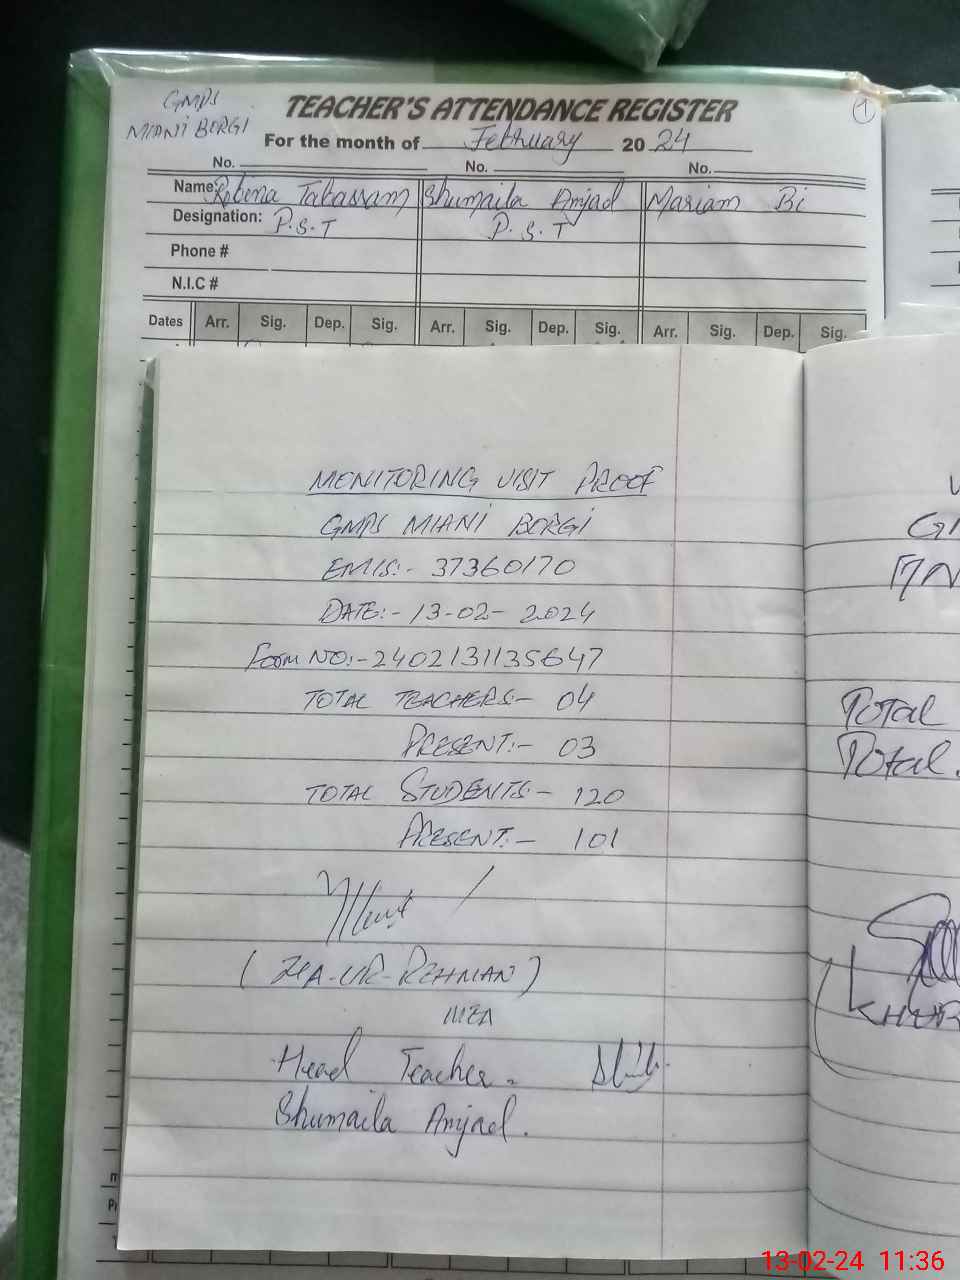 GMPS
MIANI BORGI
TEACHER'S ATTENDANCE REGISTER
1
For the month of February 2024
No. No. No.
Name: Robina Tabassam Shumaila Amjad Mariam Bi
Designation: P.S.T P.S.T
Phone #
N.I.C #
Dates Arr. Sig. Dep. Sig. Arr. Sig. Dep. Sig. Arr. Sig. Dep. Sig.
MONITORING VISIT PROOF
GMPS MIANI BORGI
EMIS:- 37360170
DATE:- 13-02-2024
Form NO:- 2402131135647
TOTAL TEACHERS:- 04
PRESENT:- 03
TOTAL STUDENTS:- 120
PRESENT:- 101
(ZIA-UR-REHMAN)
MEA
Head Teacher.
Shumaila Amjad.
Total
Total
13-02-24 11:36